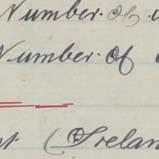 Number of
Number of
(Irelan